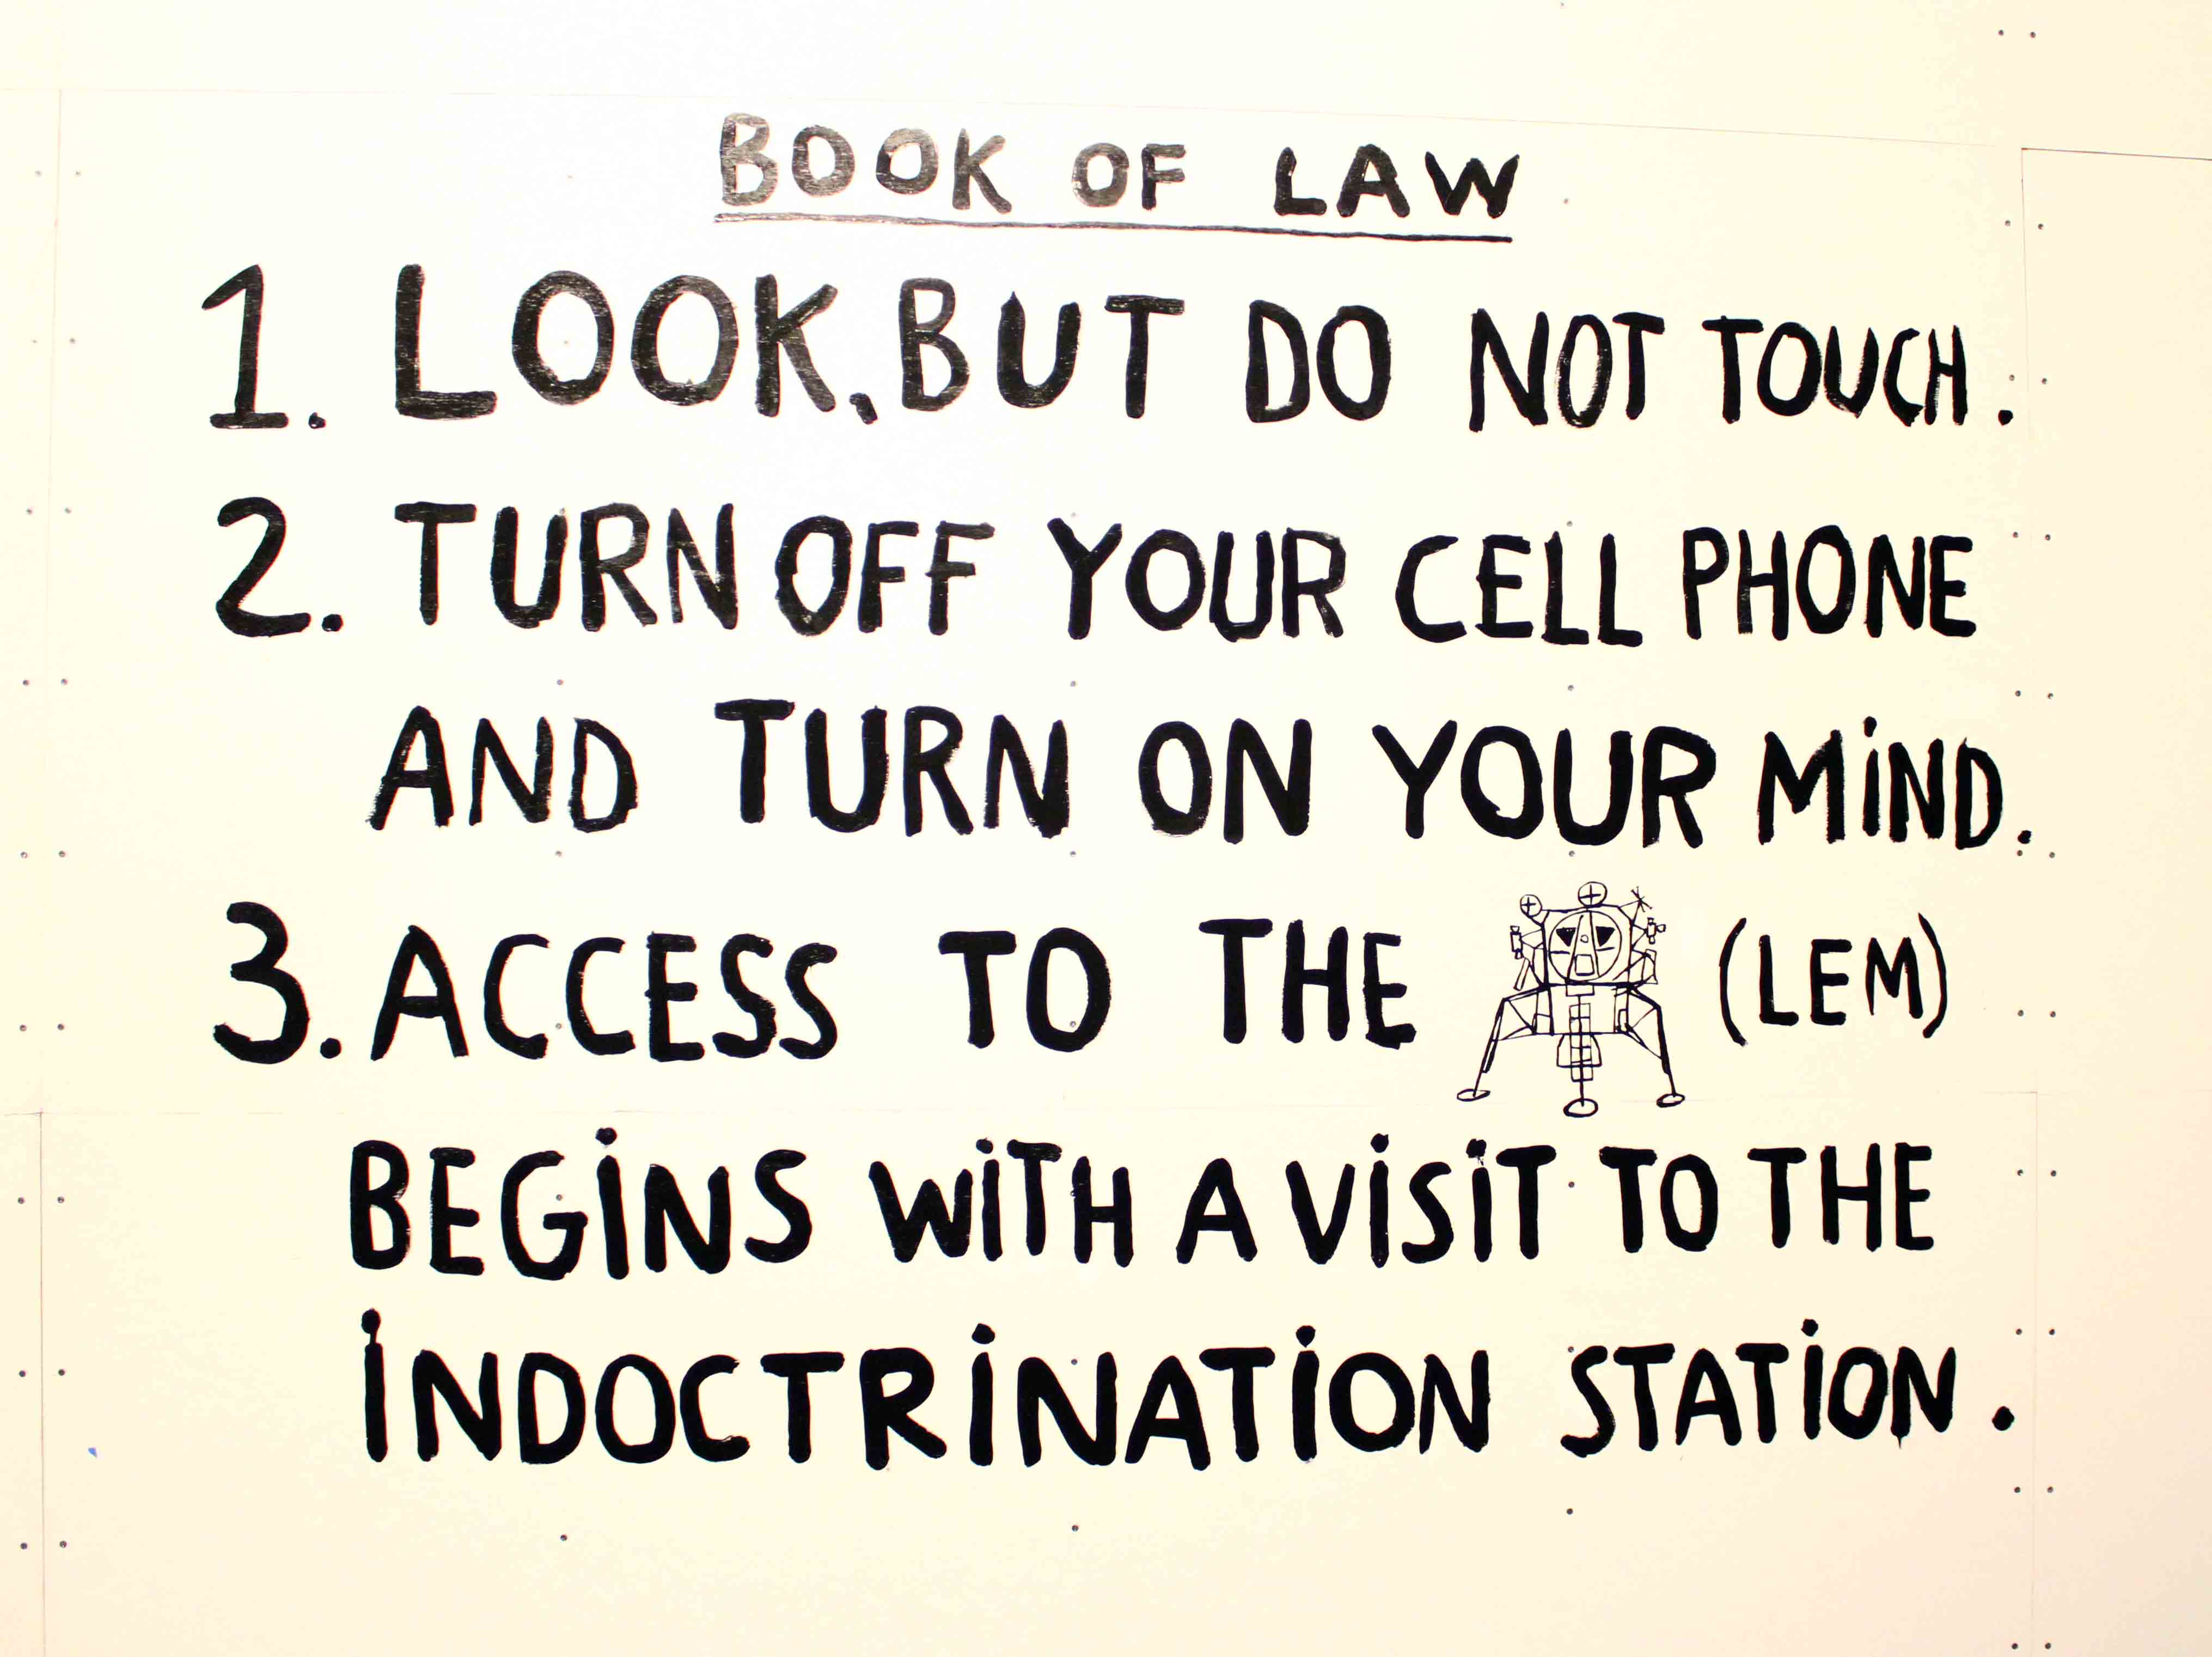 BOOK OF LAW
1. LOOK, BUT DO NOT TOUCH.
2. TURN OFF YOUR CELL PHONE
AND TURN ON YOUR MiND.
3. ACCESS TO THE (LEM)
BEGiNS WiTH A ViSiT TO THE
iNDOCTRiNATiON STATiON.